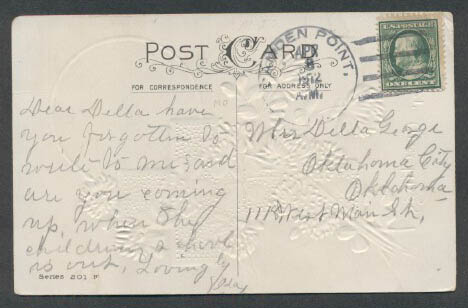 POST CARD
CAMDEN POINT,
APR
8
1912
A.M.
FOR CORRESPONDENCE
FOR ADDRESS ONLY
MO
Dear Della have
you forgotten to
write to me and
are you coming
up, when the
childrens school
is out, Loving'y
Mrs Della George
Oklahoma City
Oklahoma
11 West Main St,
Series 201 F